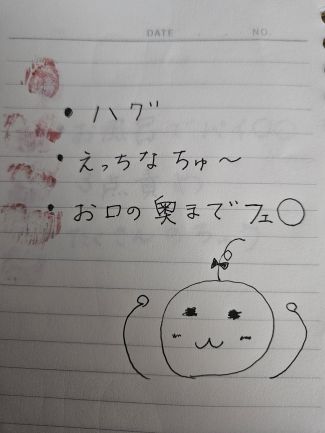 DATE . . NO.
• ハグ
• えっちなちゅ～
• お口の奥までフェ○